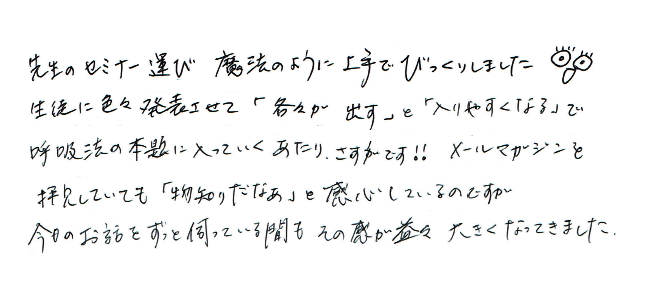 先生のセミナー運び 魔法のように上手でびっくりしました
生徒に色々発表させて「各々が 出す」と「入りやすくなる」で
呼吸法の本題に入っていくあたり、さすがです!! メールマガジンを
拝見していても「物知りだなぁ」と感心しているのですが
今日のお話をずっと伺っている間も その感が益々 大きくなってきました.